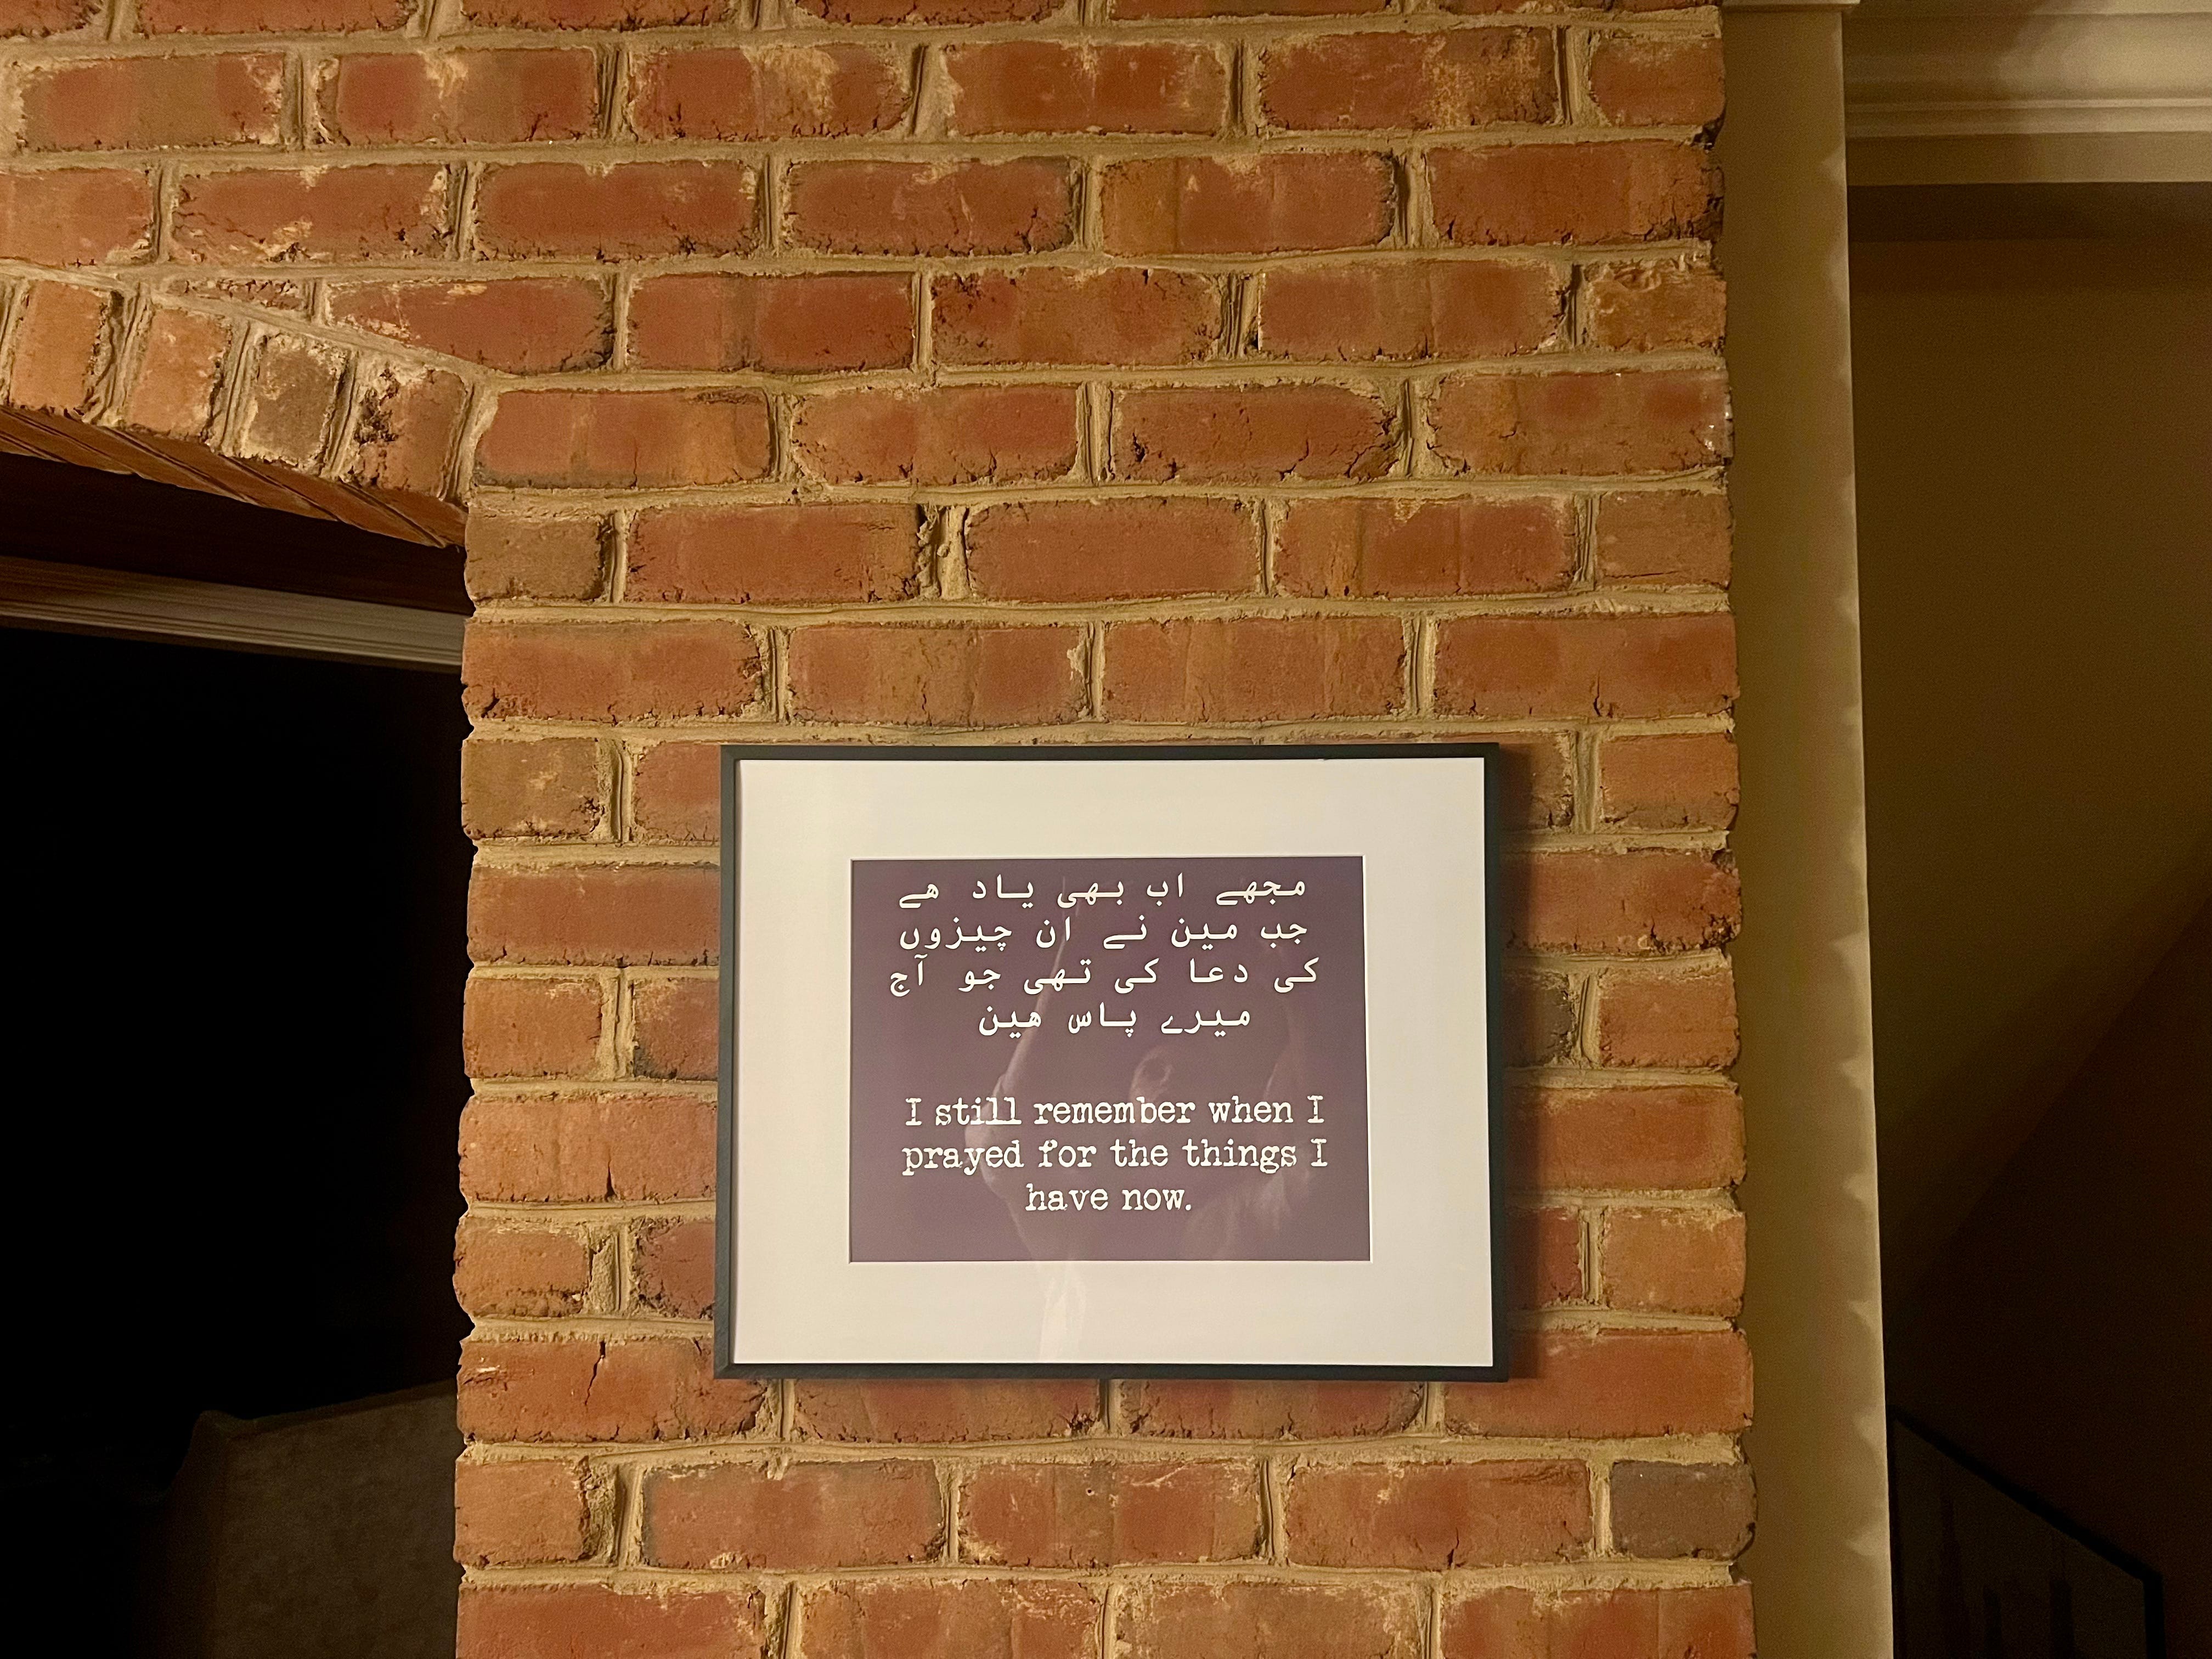 مجھے اب بھی یاد ھے
جب مین نے ان چیزوں
کی دعا کی تھی جو آج
میرے پاس ھین
I still remember when I
prayed for the things I
have now.